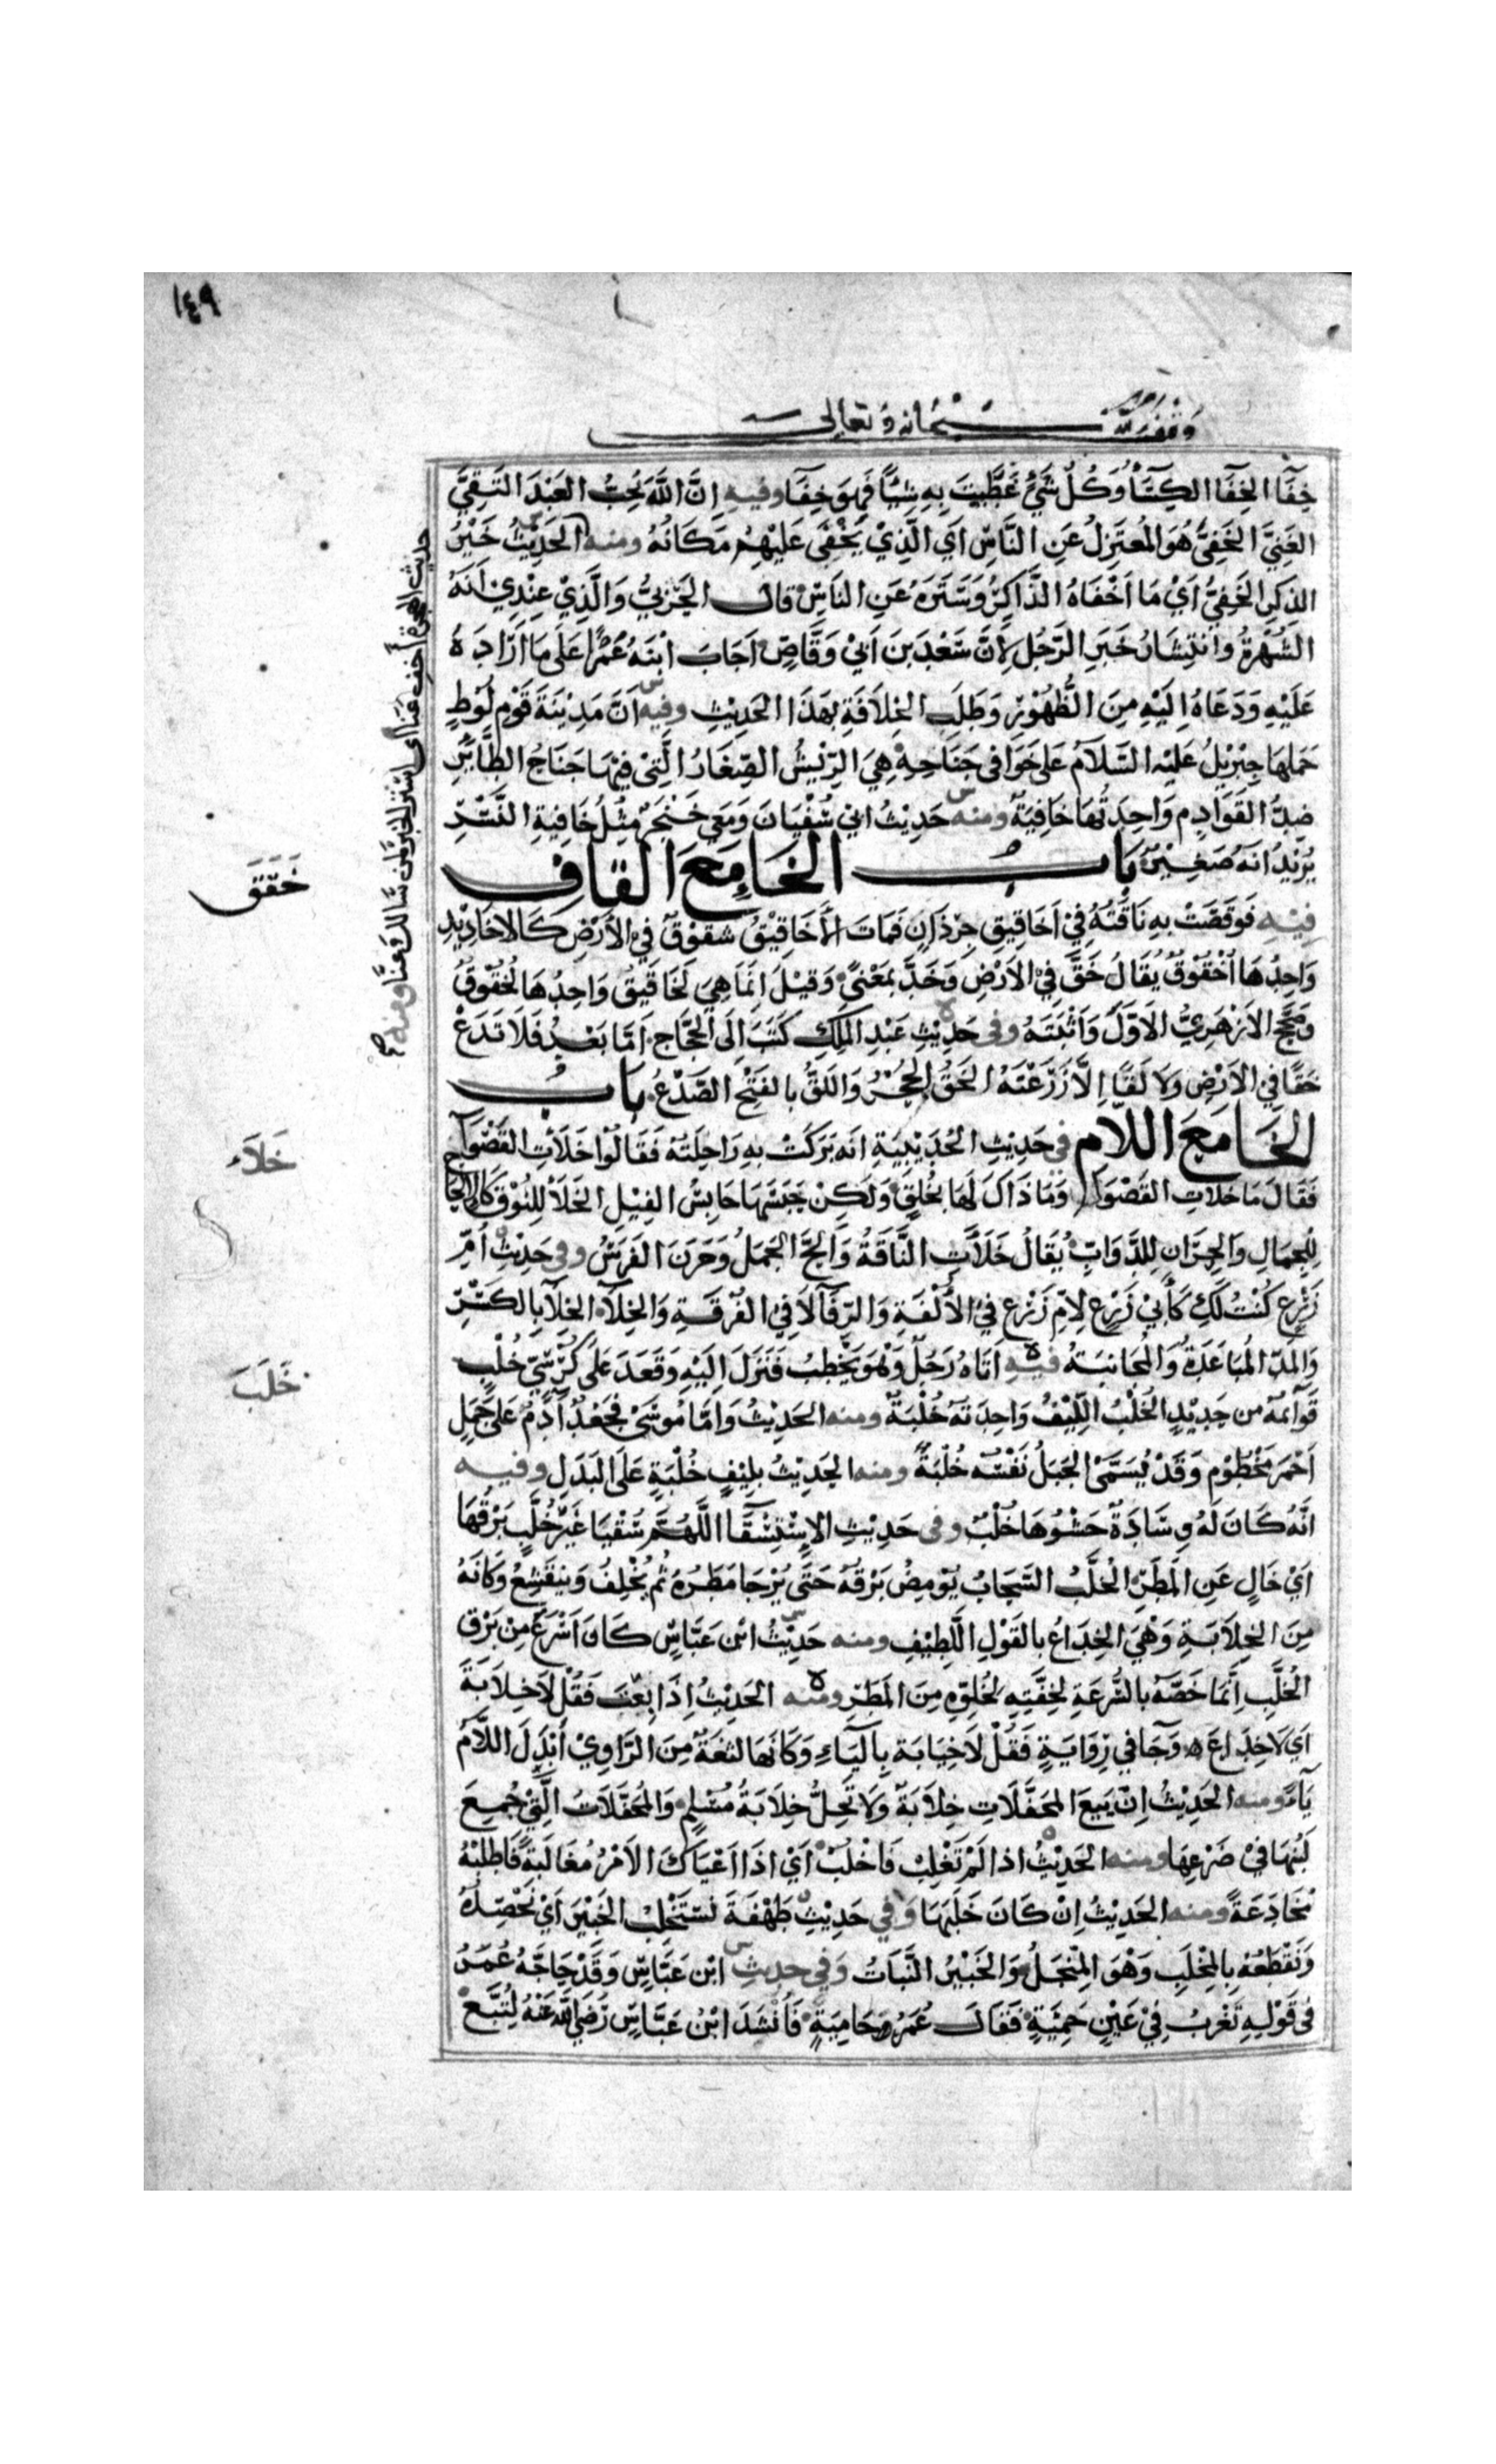 ١٤٩
وقف لله سبحانه وتعالى
خِفَآ الخِفَآ الكِسَآءُ وَكُلُّ شَئٍ غَطَّيتَ بِهِ شِئًا فَهِوَ خِفَآ وفيه اِنَّ اللّٰهَ يُحِبُّ العَبْدَ التَّقِيَّ
الغَنِيَّ الخَفِيَّ هُوَ المُعتَزِلُ عَنِ النَّاسِ اَي الَّذِيْ يَخْفَى عَلَيْهِمْ مَكَانُهُ ومنه الحَدِيْثُ خَيْرُ
الذِكرِ الخَفِيُّ اَيْ مَا اَخْفَاهُ الذَّاكِرُ وَسَتَرَهُ عَنِ النَاسِ قال الحَرْبِيُّ وَالَّذِيْ عِنْدِيْ اَنَّهُ
الشُهْرَةُ وانتِشَارُ خَبَرِ الرَّجُلِ لِأَنَّ سَعْدَ بنَ اَبِيْ وَقَّاصٍ اَجَابَ ابْنَهُ عُمَرًا عَلَى مَا اَرَادَهُ
عَلَيْهِ وَدَعَاهُ اِلَيْهِ مِنَ الظُّهُوْرِ وَطَلَبِ الخِلَافَةِ بِهَذَا الحَدِيْثِ وفيه اَنَّ مَدِيْنَةَ قَوْمِ لُوْطٍ
حَمَلَهَا جِبْرِيْلُ عَلَيْهِ السَّلاَمُ عَلَى خَوَافِي جَنَاحِهِ هِيَ الرِّيْشُ الصِّغَارُ الَّتِيْ فِيْهَا جَنَاحُ الطَّايِرِ
ضِدُّ القَوَادِمِ وَاحِدَتُهَا خَافِيَةٌ ومنه حَدِيْثُ ابيْ سُفْيَانَ وَمَعِيْ خَنْجَرٌ مِثْلُ خَافِيَةِ النَّسْرِ
يُرِيْدُ اَنَّهُ صَغِيْرٌ بَابُ الخَاءِ مَعَ القَافِ
فِيْهِ فَوَقَصَتْ بِهِ نَاقَتُهُ فِيْ اَخَاقِيْقِ جِرْذَانٍ فَمَاتَ الأَخَاقِيْقُ شقوْقٌ فِي الأَرْضِ كَالاخَادِيْدِ
وَاحِدُهَا اُخْقُوْقٌ يُقَالُ خَقَّ فِي الاَرْضِ وَخَدَّ بمَعْنًى وَقِيْلَ اِنَّمَا هِيَ لَخَاقِيْقُ وَاحِدُهَا لُخْقُوْقٌ
وصَحَّحَ الاَزْهَرِيُّ الاَوَّلَ وَاَثْبَتَهُ وفى حَدِيْثِ عَبْدِ المَلِكِ كَتَبَ اِلَى الحَجَّاجِ اَمَّا بَعْدُ فَلَا تَدَعْ
خَقًّا فِي الاَرْضِ وَلا لَقًّا اِلَّا زَرَعْتَهُ الخَقُّ الجُحْرُ وَاللَقُّ بِالفَتْحِ الصَّدْعُ بَابُ
الخَاءِ مَعَ اللَّامِ في حَدِيْثِ الحُدَيْبِيَةِ انَّهُ بَرَكَتْ بِهِ رَاحِلَتُهُ فَقَالُوْا خَلَأَتِ القَصْوَآ
فَقَالَ مَا خَلَات القَصْوَآ وَمَا ذَاكَ لَهَا بِخُلُقٍ وَلَكِنْ حَبَسَهَا حَابِسُ الفِيْلِ الخَلَأُ لِلنُّوْقِ كَالاِلحَاحِ
لِلجِمَالِ وَالحِرَانِ لِلدَّوَابِّ يُقَالُ خَلَأَتِ النَّاقَةُ وَاَلحَّ الجَمَلُ وَحَرَنَ الفَرَسُ وفى حَدِيْثِ اُمِّ
زَرْعٍ كُنْتُ لَكِ كَأَبِيْ زَرْعٍ لِاُمِّ زَرْعٍ فِيْ الأُلْفَةِ وَالرِّفَآ لاَ فِيْ الفُرْقَةِ وَالخِلَآ الخِلَآ بِالكَسْرِ
وَالمَدِّ المُبَاعَدَةُ وَالمُجَانبَةُ فيه اَتَاهُ رَجُلٌ وَهْوَ يَخْطُبُ فَنَزَلَ اِلَيْهِ وَقَعَدَ عَلَى كُرْسِيِّ خُلْبٍ
قَوَآئمهُ مِن حَدِيْدٍ الخُلْبُ اللِّيْفُ وَاحِدَتُهُ خُلْبَةٌ ومنه الحَدِيْثُ وَاَمَّا مُوسَى فَجَعْدٌ آدَمُ عَلَى جَمَلٍ
اَحْمَرَ مَخْطُوْمٍ وَقَدْ يُسَمَّى الحَبَلُ نَفْسُهُ خُلْبَةً ومنه الحَدِيْثُ بِلِيْفِ خُلْبَةٍ عَلَى البَدَلِ وفيه
انَّهُ كَانَ لَهُ وِسَادَةٌ حَشْوُهَا خُلْبٌ وفى حَدِيْثِ الاِسْتِسْقَآ اللَّهُمَّ سُقْيَا غَيْرَ خُلَّبٍ بَرْقُهَا
اَيْ خَالٍ عَنِ المَطَرِ الخُلَّبُ السَّحَابُ يُوْمِضُ بَرْقُهُ حَتَّى يُرْجَا مَطَرُهُ ثُمَّ يُخْلِفُ وَيَنقَشِعُ وَكَانَّهُ
مِنَ الخِلَابَةِ وَهْيَ الخِدَاعُ بالقَوْلِ اللَّطِيْفِ ومنه حَدِيْثُ ابْن عَبَّاسٍ كَانَ اَسْرَعَ مِنْ بَرْقِ
الخُلَّبِ اِنَّمَا خَصَّهُ بالسُّرعَةِ لِخِفَّتِهِ لِخُلوِّهِ مِنَ المَطَرِ ومنه الحَدِيْثُ اِذَا بِعْتَ فَقُلْ لَا خِلَابَةَ
اَيْ لَا خِدَاعَ وَجَآ فِي رِوَايَةٍ فَقُلْ لَا خِيَابَة بِاليَاءِ وَكَانهَا لثغَةٌ مِنَ الرَّاوِيْ أَبْدَلَ اللَّامَ
يَآءً ومنه الحَدِيْثُ اِنّ بَيعَ المحَفَّلَاتِ خِلَابَةٌ وَلَا تَحِلُّ خِلَابَةُ مُسْلِمٍ وَالمُحَفَّلَاتُ الَّتِيْ جُمِعَ
لَبنُهَا فِيْ ضَرْعِهَا ومنه الحَدِيْثُ اذا لَمْ تَغْلِبْ فَاخْلُبْ اَيْ اِذَا اَعْيَاكَ الاَمْرُ مُغَالَبَةً فَاطْلُبْهُ
مُخَادَعَةً ومنه الحَدِيْثُ اِنْ كَانَ خَلَبَهَا وَفِي حَدِيْثِ طَهْفَةَ نَسْتَخْلِبُ الخَبِيْرَ اَيْ نَحْصِدُهُ
وَنَقْطَعُهُ بِالمِخْلَبِ وَهْوَ المِنْجَلُ وَالخَبِيْرُ النَّبَاتُ وَفِي حديثِ ابْن عَبَّاسٍ وَقَدْ حَاجَّهُ عُمَرُ
فى قَوْلِهِ تَغْرُبُ فِيْ عَيْنٍ حَمِئَةٍ فَقَالَ عُمَرُ حَامِيَةٍ فَأَنْشَدَ ابْنُ عَبَّاسٍ رَضِيَ اللّٰهُ عَنْهُ لِتُبَّعٍ
حديث الهجرة أَخفِ عَنّا اى استر الخبر لمن سَالك عنَّا ومنه صح
خَقَقَ
خَلَاءَ
خَلَبَ